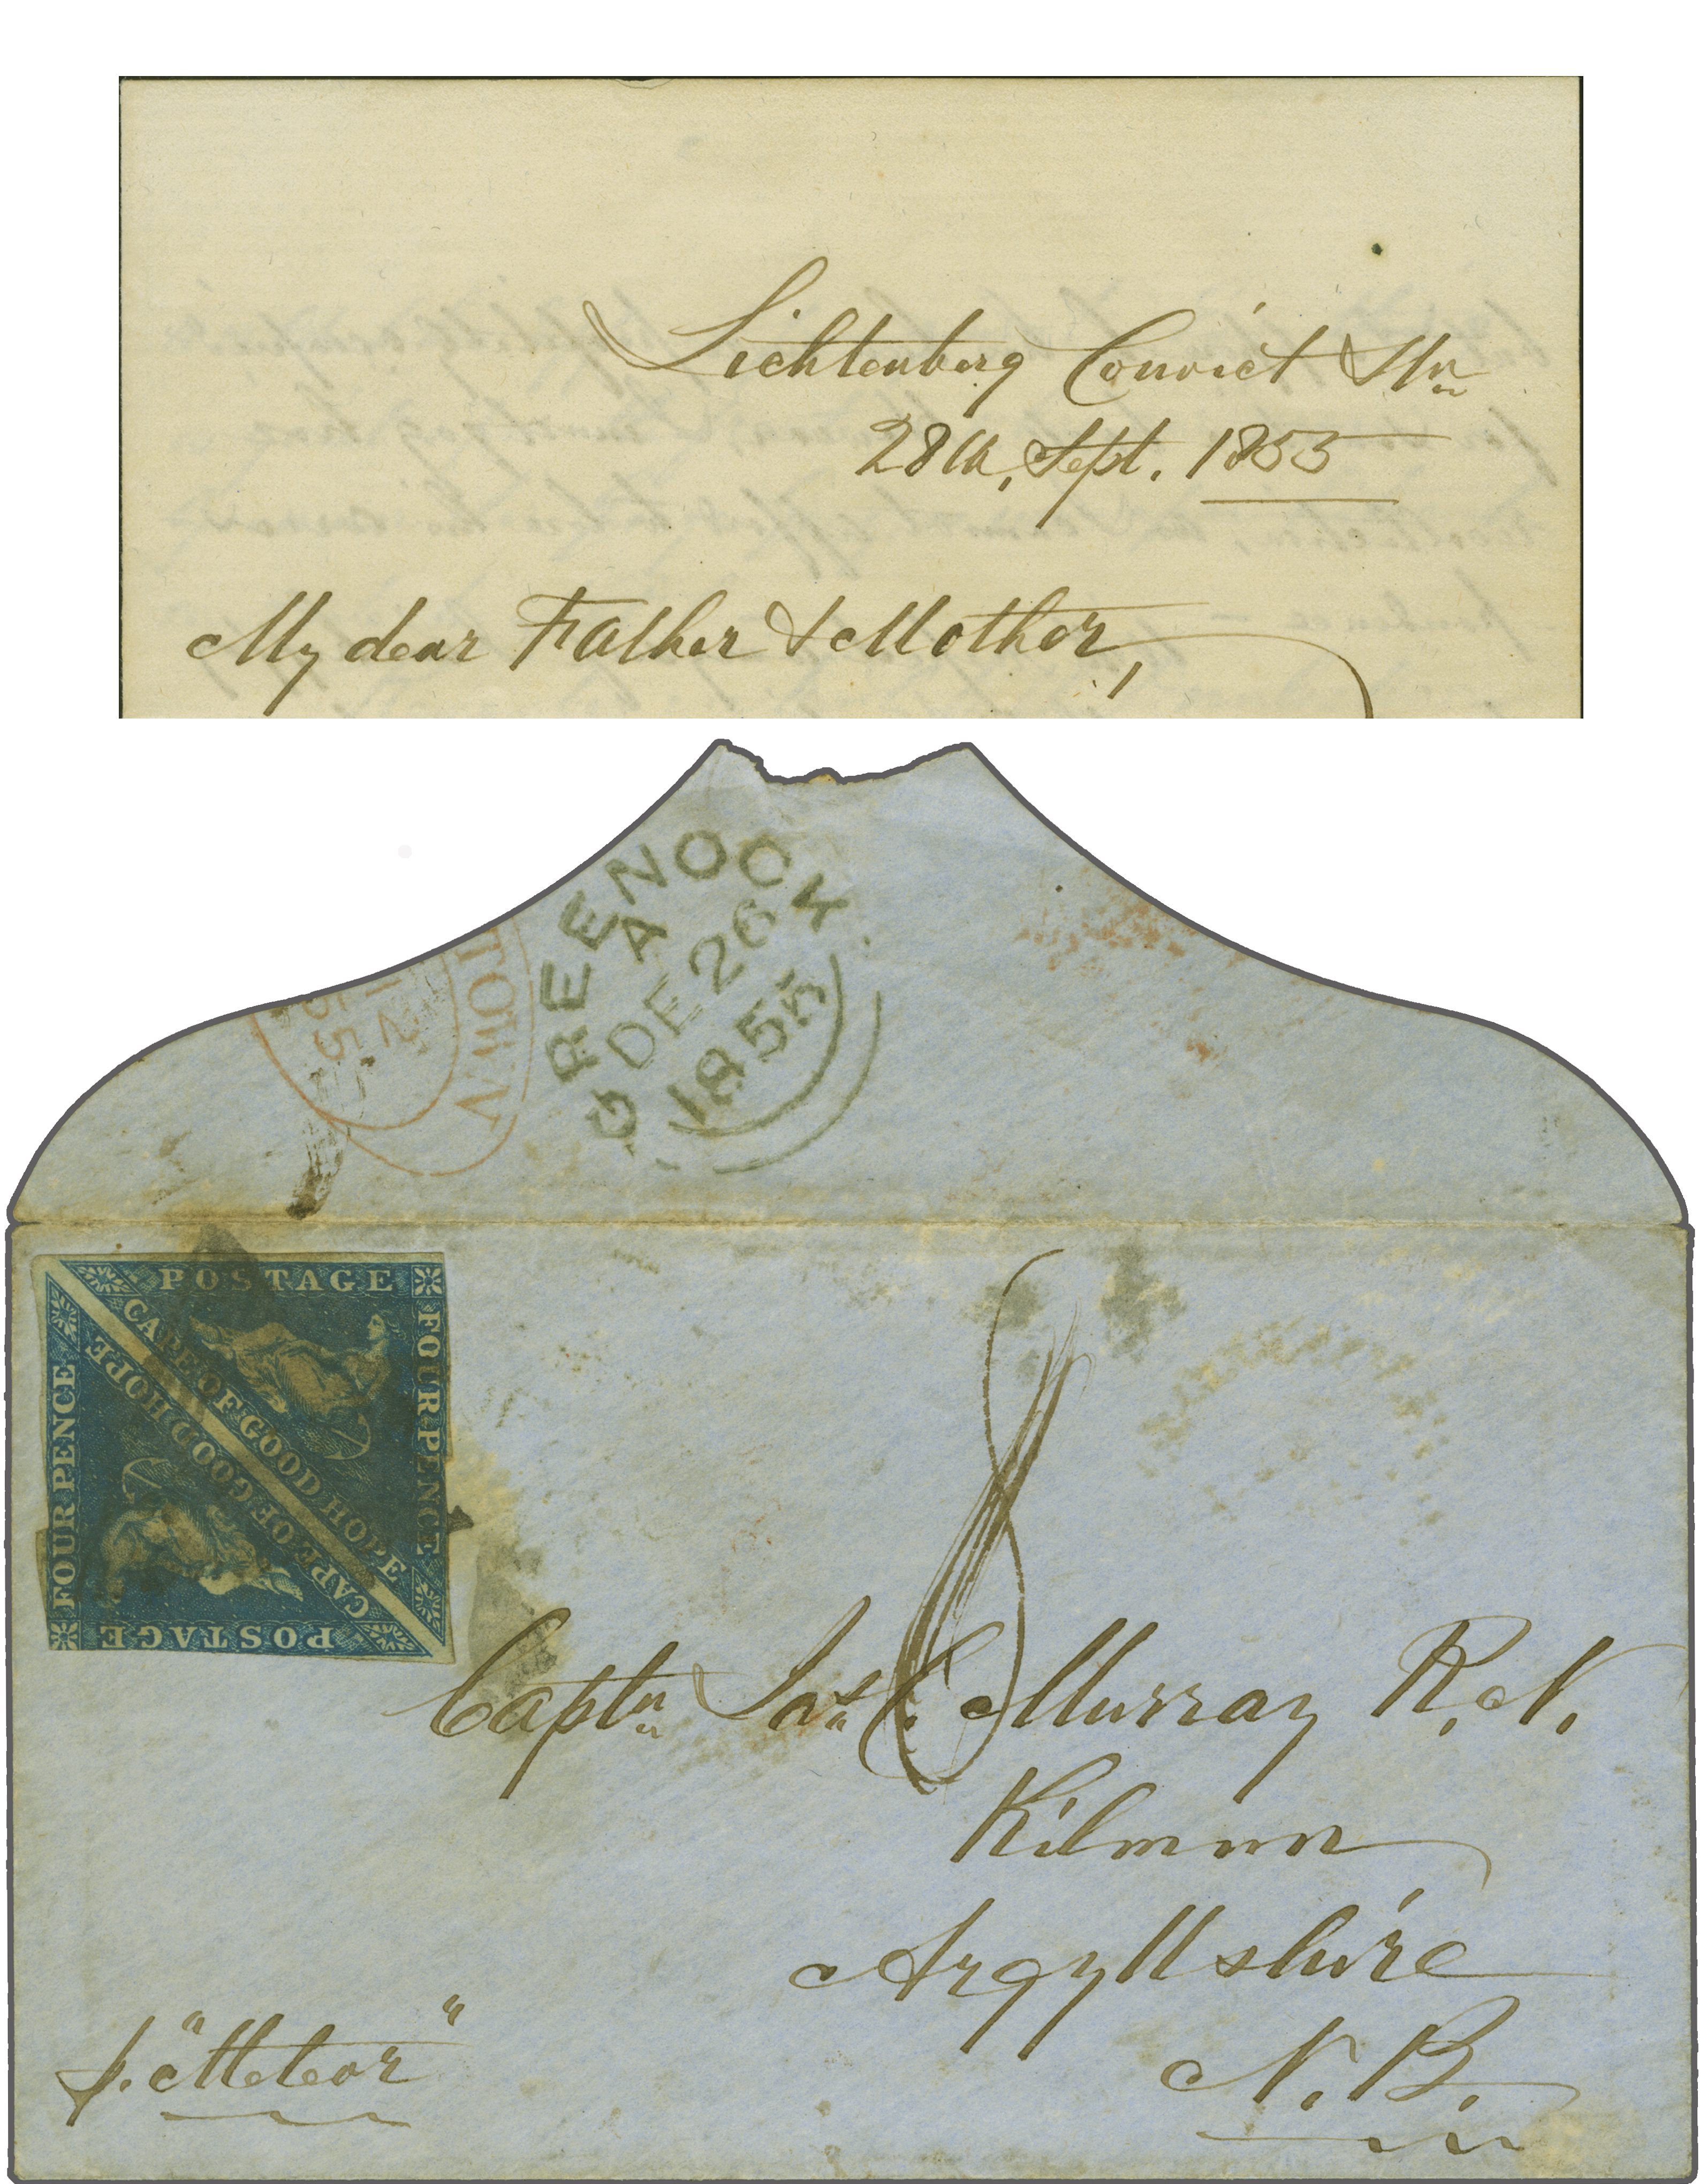 Lichtenberg Convict Stn
28th, Sept. 1855
My dear Father & Mother,
GREENOCK
A
DE 26
1855
POSTAGE
FOUR PENCE
CAPE OF GOOD HOPE
CAPE OF GOOD HOPE
FOUR PENCE
POSTAGE
8
Captn Jas C. Murray R.N.
Kilmun
Argyllshire
N.B.
p. "Meteor"